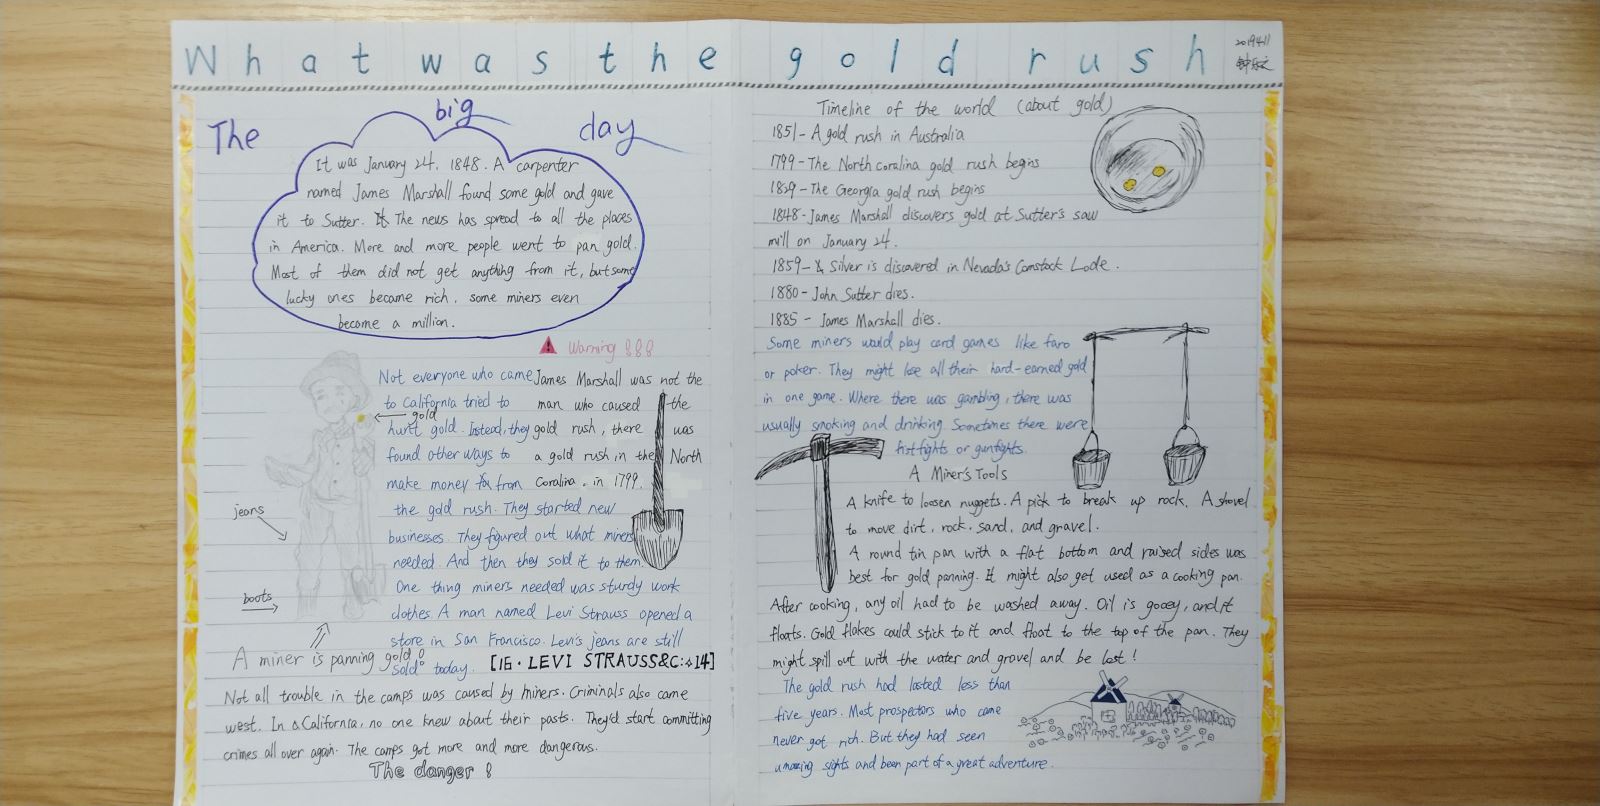 What was the gold rush
2019.4.11
The big day
It was January 24. 1848. A carpenter
named James Marshall found some gold and gave
it to Sutter. The news has spread to all the places
in America. More and more people went to pan gold.
Most of them did not get anything from it, but some
lucky ones became rich. some miners even
become a million.
Warning !!!
Not everyone who came
to California tried to
hunt gold. Instead, they
found other ways to
make money from
the gold rush. They started new
businesses. They figured out what miners
needed. And then they sold it to them.
One thing miners needed was sturdy work
clothes. A man named Levi Strauss opened a
store in San Francisco. Levi's jeans are still
sold today.
[16. LEVI STRAUSS&C:+14]
James Marshall was not the
man who caused the
gold rush, there was
a gold rush in the North
Coralina. in 1799.
gold
jeans
boots
A miner is panning gold!
Not all trouble in the camps was caused by miners. Criminals also came
west. In California, no one knew about their pasts. They'd start committing
crimes all over again. The camps got more and more dangerous.
The danger!
Timeline of the world (about gold)
1851- A gold rush in Australia
1799- The North coralina gold rush begins
1829- The Georgia gold rush begins
1848- James Marshall discovers gold at Sutter's saw
mill on January 24.
1859- Silver is discovered in Nevada's Comstock Lode.
1880- John Sutter dies.
1885 - James Marshall dies.
Some miners would play card games like faro
or poker. They might lose all their hard-earned gold
in one game. Where there was gambling, there was
usually smoking and drinking. Sometimes there were
fistfights or gunfights.
A Miner's Tools
A knife to loosen nuggets. A pick to break up rock. A shovel
to move dirt, rock, sand, and gravel.
A round tin pan with a flat bottom and raised sides was
best for gold panning. It might also get used as a cooking pan.
After cooking, any oil had to be washed away. Oil is gooey, and it
floats. Gold flakes could stick to it and float to the top of the pan. They
might spill out with the water and gravel and be lost!
The gold rush had lasted less than
five years. Most prospectors who came
never got rich. But they had seen
amazing sights and been part of a great adventure.